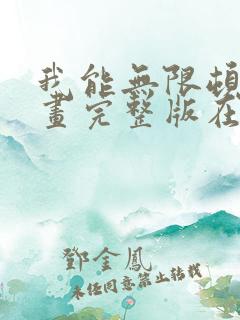 我能無限頓
畫完整版在
鄧金鳳
未经同意禁止转载